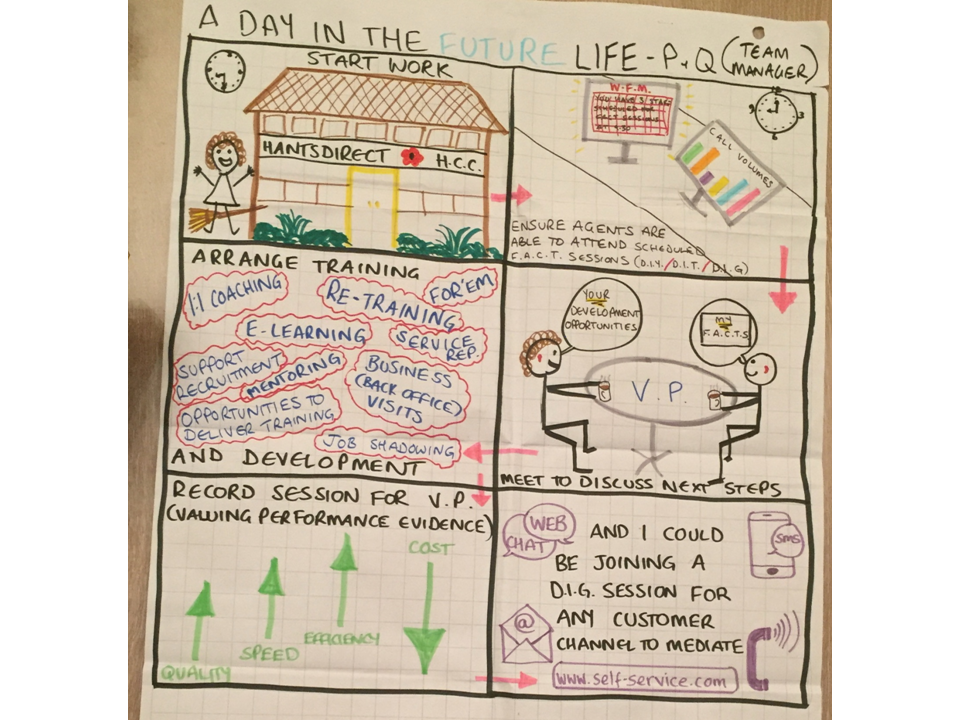 A DAY IN THE FUTURE LIFE - P+Q (TEAM MANAGER)
START WORK
HANTSDIRECT H.C.C.
W.F.M.
YOU HAVE 3 STAFF
SCHEDULED FOR
FACT SESSIONS
CALL VOLUMES
12
3
6
ENSURE AGENTS ARE
ABLE TO ATTEND SCHEDULED
F.A.C.T. SESSIONS (D.I.Y./D.I.T./D.I.G)
YOUR
DEVELOPMENT
OPPORTUNITIES
MY
F.A.C.T.S
V.P.
MEET TO DISCUSS NEXT STEPS
ARRANGE TRAINING
1:1 COACHING
RE-TRAINING
FOR'EM
E-LEARNING
SERVICE
REP.
SUPPORT
RECRUITMENT
MENTORING
BUSINESS
(BACK OFFICE)
VISITS
OPPORTUNITIES TO
DELIVER TRAINING
JOB SHADOWING
AND DEVELOPMENT
RECORD SESSION FOR V.P.
(VALUING PERFORMANCE EVIDENCE)
QUALITY
SPEED
EFFICIENCY
COST
WEB
CHAT
SMS
AND I COULD
BE JOINING A
D.I.G. SESSION FOR
ANY CUSTOMER
CHANNEL TO MEDIATE
@
www.self-service.com